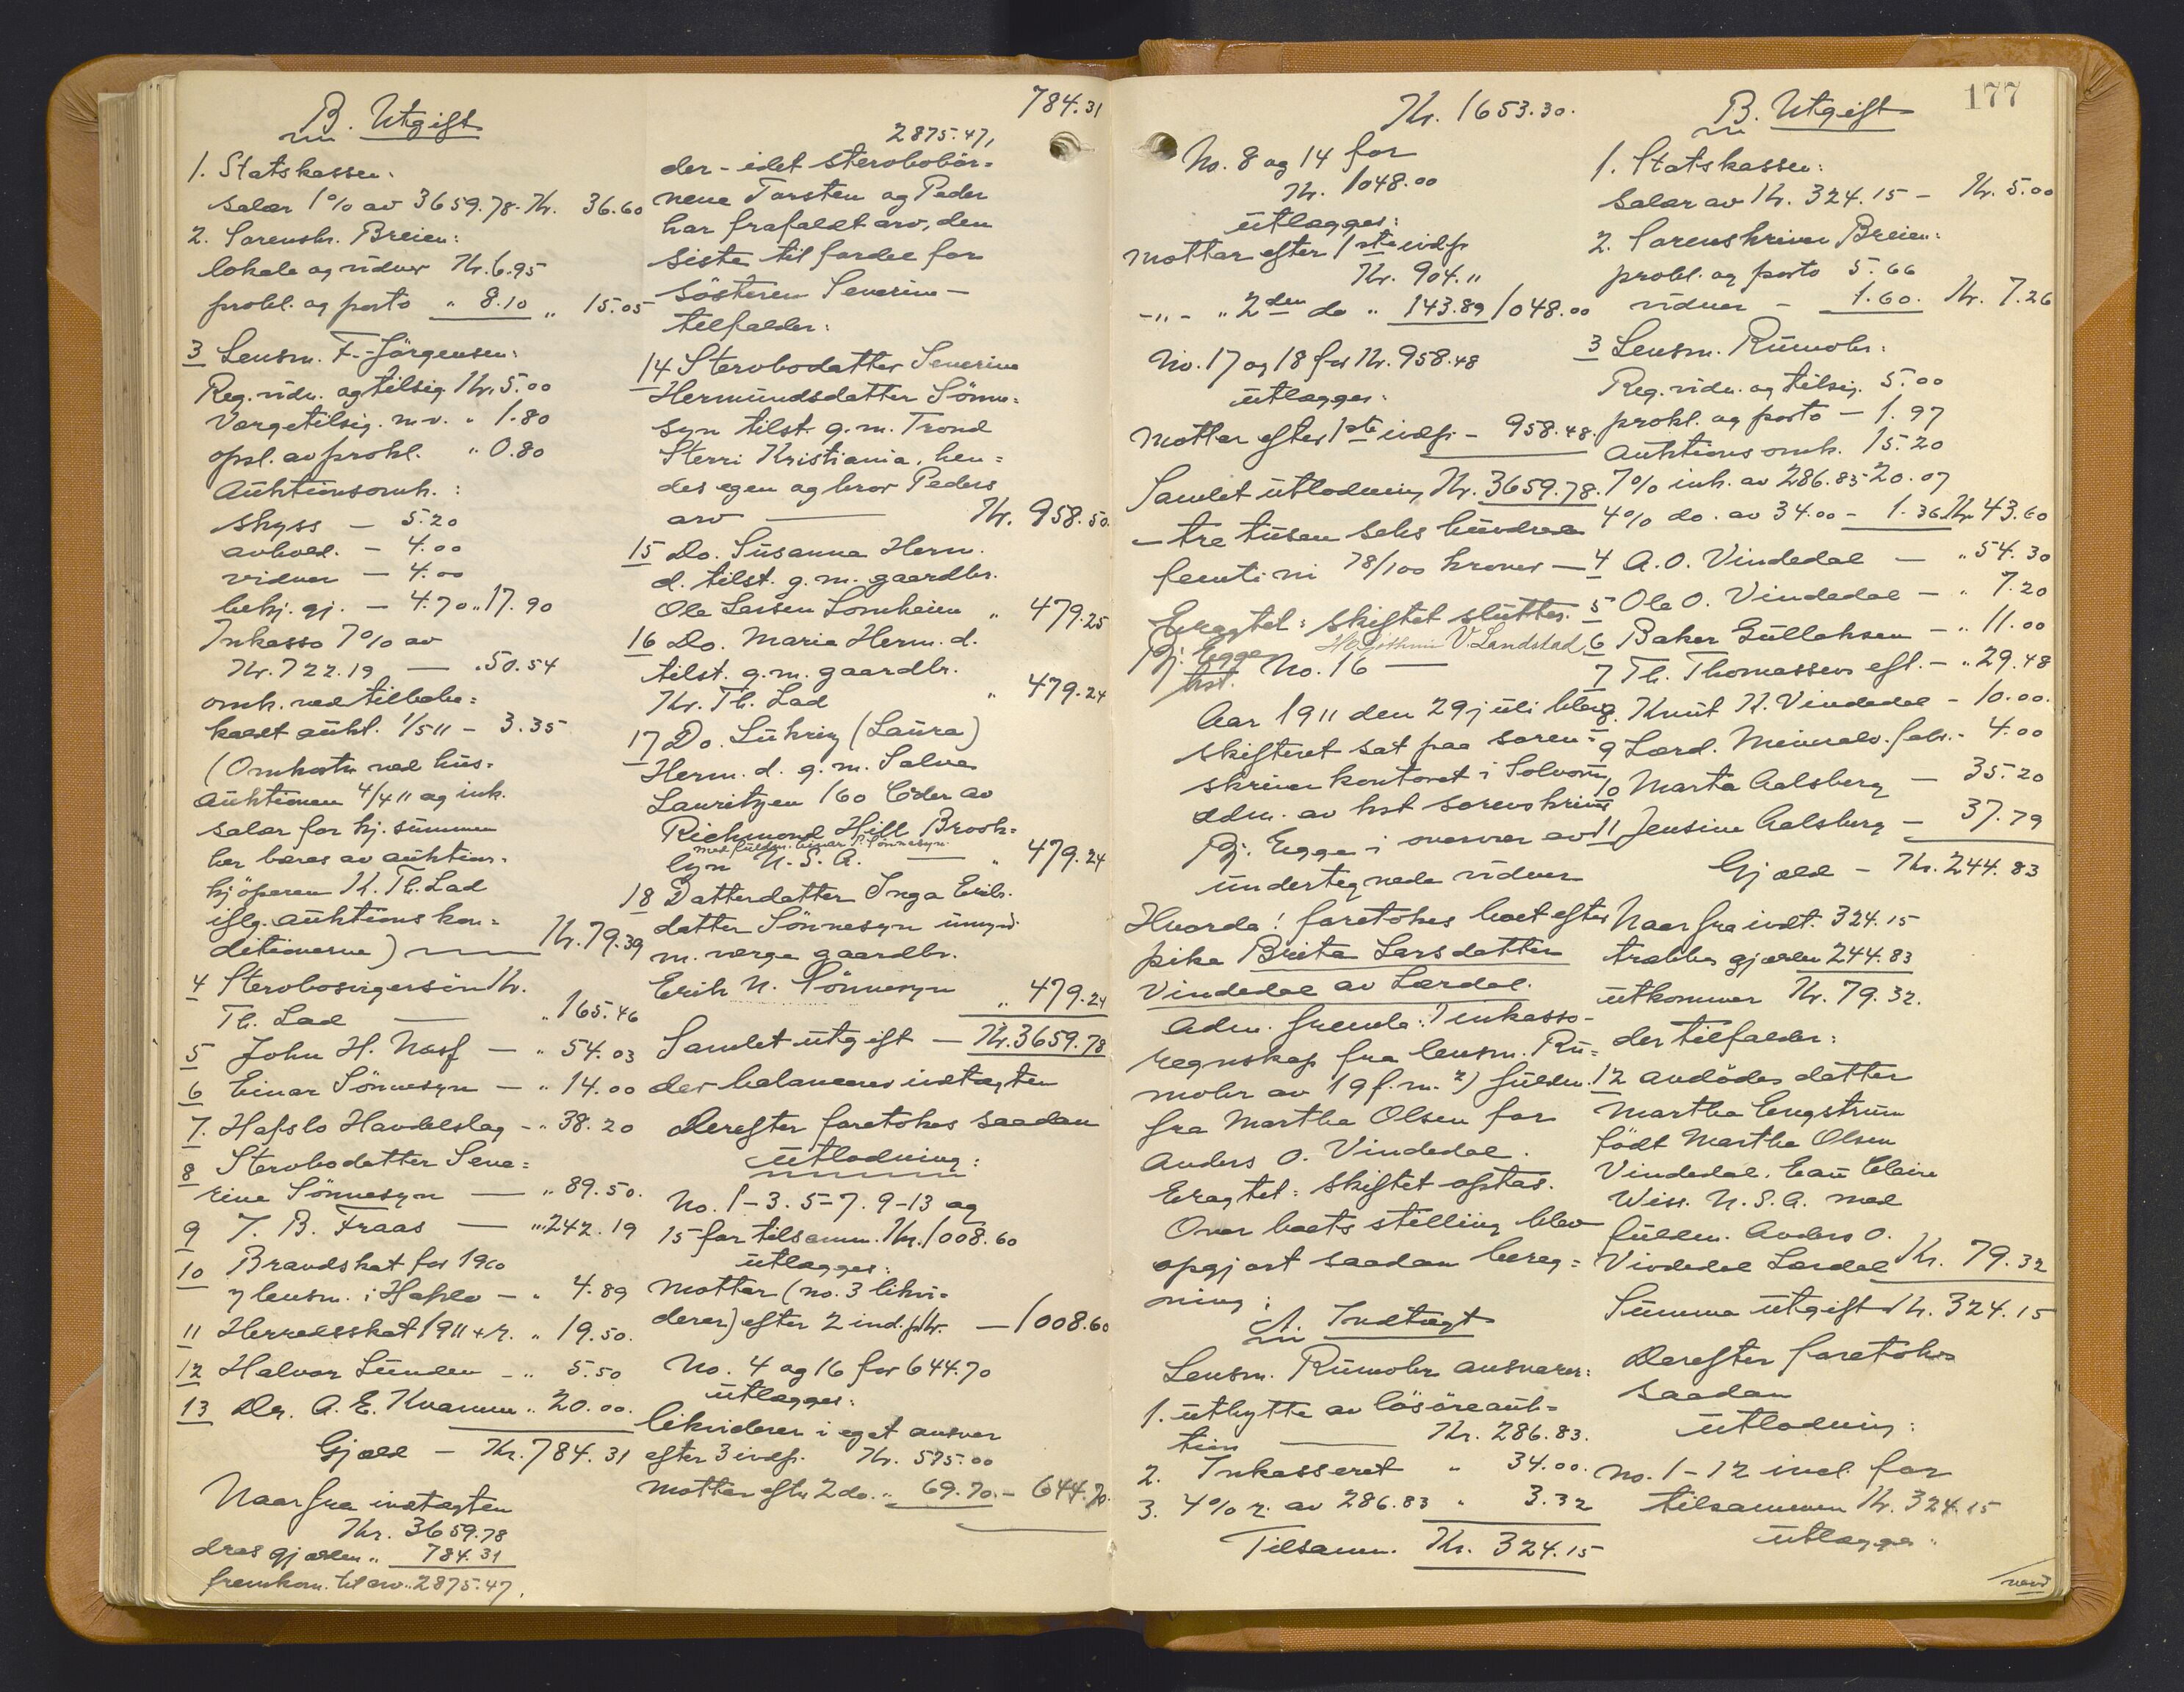 B. Utgift
1. Statskassen:
salær 1% av 3659.78. Kr. 36.60
2. Sorenskr. Breien:
lokale og vidner Kr. 6.95
prokl. og porto " 8.10 " 15.05
3 Lensm. F. Jörgensen:
Reg. vidn. og tilsig. Kr. 5.00
Vergetilsig. m.v. " 1.80
opsl. av prokl. " 0.80
Auktionsomk.:
skyss - 5.20
avhold. - 4.00
vidner - 4.00
bekj. gj. - 4.70 " 17.90
Inkasso 7% av
Kr. 722.19 — " 50.54
omk. ved tilbake=
kaldt aukt. 1/5 11 - 3.35
(Omkostn. ved hus=
auktionen 4/4 11 og ink.
salær for kj. summen
her bæres av auktions=
kjöperen K. Th. Lad
iflg. auktionskon=
ditionerne) — Kr. 79.39
4 Stervbosvigersön Kr.
Th. Lad — " 165.46
5 John H. Næss — " 54.03
6 Einar Sönnesyn — " 14.00
7. Hafslo Handelslag - " 38.20
8 Stervbodatter Seve=
rine Sönnesyn — " 89.50.
9 T. B. Fraas — " 242.19
10 Brandskat for 1910
lensm. i Hafslo — " 4.89
11 Herredsskat 1911 + r. " 19.50.
12 Halvor Lunden - " 5.50
13 Dr. A. E. Kvamme " 20.00.
Gjæld - Kr. 784.31
Naar fra indtægten
Kr. 3659.78
dras gjælden " 784.31
fremkom. til arv " 2875.47.
784.31
2875.47,
der - idet stervbobör=
nene Torsten og Peder
har frafaldt arv, den
siste til fordel for
sösteren Severine -
tilfalder:
14 Stervbodatter Severine
Hermundsdatter Sönne=
syn tilst. g. m. Trond
Sterri Kristiania, hen=
des egen og bror Peders
arv — Kr. 958.50.
15 Do. Susanna Herm.
d. tilst. g. m. gaardbr.
Ole Larsen Lomheim " 479.25
16 Do. Marie Herm. d.
tilst. g. m. gaardbr.
Kr. Th. Lad " 479.24
17 Do. Lukrig (Laura)
Herm. d. g. m. Salve
Lauritzen 160 Ceder av
Richmond Hill Brook=
med fuldm. Einar P. Sönnesyn
lyn U. S. A. — " 479.24
18 Datterdatter Inga Erik.
datter Sönnesyn umynd.
m. verge gaardbr.
Erik N. Sönnesyn " 479.24
Samlet utgift — Kr. 3659.78
der balancerer indtægten
Derefter foretokes saadan
utlodning:
No. 1-3. 5-7. 9-13 og
15 for tilsamm. Kr. 1008.60
utlægges:
Mottar (no. 3 likvi=
derer) efter 2 ind.p. Kr. — 1008.60
No. 4 og 16 for 644.70
utlægges:
likviderer i eget ansvar
efter 3 indp. Kr. 575.00
mottar efter 2 do. " 69.70. - 644.70.
177
Kr. 1653.30.
No. 8 og 14 for
Kr. 1048.00
utlægges:
Mottar efter 1ste indp.
Kr. 904."
-"- " 2den do " 143.89 1048.00
No. 17 og 18 for Kr. 958.48
utlægges:
Mottar efter 1ste indp. - 958.48.
Samlet utlodning Kr. 3659.78.
- tre tusen seks hundrede
femti ni 78/100 kroner -
Eragtet: skiftet sluttes.
Bj. Egge V. Landstad
kst.
No. 16 —
Aar 1911 den 29 juli blev
skifteret sat paa soren=
skriverkontoret i Solvorn,
adm. av kst sorenskriver
Bj. Egge i overvær av
undertegnede vidner
Hvorda! foretokes boet efter
pike Brita Larsdatter
Vindedal av Lærdal.
Adm. fremla: 1) inkasso-
regnskap fra lensm. Ru=
mohr av 19 f. m. 2) fuldm.
fra Martha Olsen for
Anders O. Vindedal.
Eragtet: Skiftet optas.
Over boets stilling blev
opgjort saadan bereg=
ning:
A. Indtægt
Lensm. Rumohr ansvarer:
1. utbytte av lösöreauk=
tion — Kr. 286.83.
2. Inkasseret " 34.00.
3. 4% r. av 286.83 " 3.32
Tilsamm. Kr. 324.15
B. Utgift
1. Statskassen:
Salær av Kr. 324.15 - Kr. 5.00
2. Sorenskriver Breien:
prokl. og porto 5.66
vidner - 1.60. Kr. 7.26
3 Lensm. Rumohr:
Reg. vidn. og tilsig. 5.00
prokl. og porto - 1.97
Auktionsomk. 15.20
7% ink. av 286.83 - 20.07
4% do. av 34.00 - 1.36 Kr. 43.60
4 A. O. Vindedal — " 54.30
5 Ole O. Vindedal — " 7.20
6 Baker Gullaksen — " 11.00
7 Th. Thomassens eft. - " 29.48
8. Knut K. Vindedal - 10.00.
9 Lærd. Mineralv. fabr. - 4.00
10 Marta Aalsberg — 35.20
11 Jensine Aalsberg — 37.79
Gjæld - Kr. 244.83
Naar fra indt. 324.15
trækkes gjælden 244.83
utkommer Kr. 79.32.
der tilfalder:
12 avdödes datter
Martha Engstrum
födt Martha Olsen
Vindedal, Eau Claire
Wiss. U. S. A. med
fuldm. Anders O.
Vindedal Lærdal Kr. 79.32
Summa utgift Kr. 324.15
Derefter foretokes
saadan
utlodning:
No. 1-12 incl. for
tilsammen Kr. 324.15
utlægges:
vend